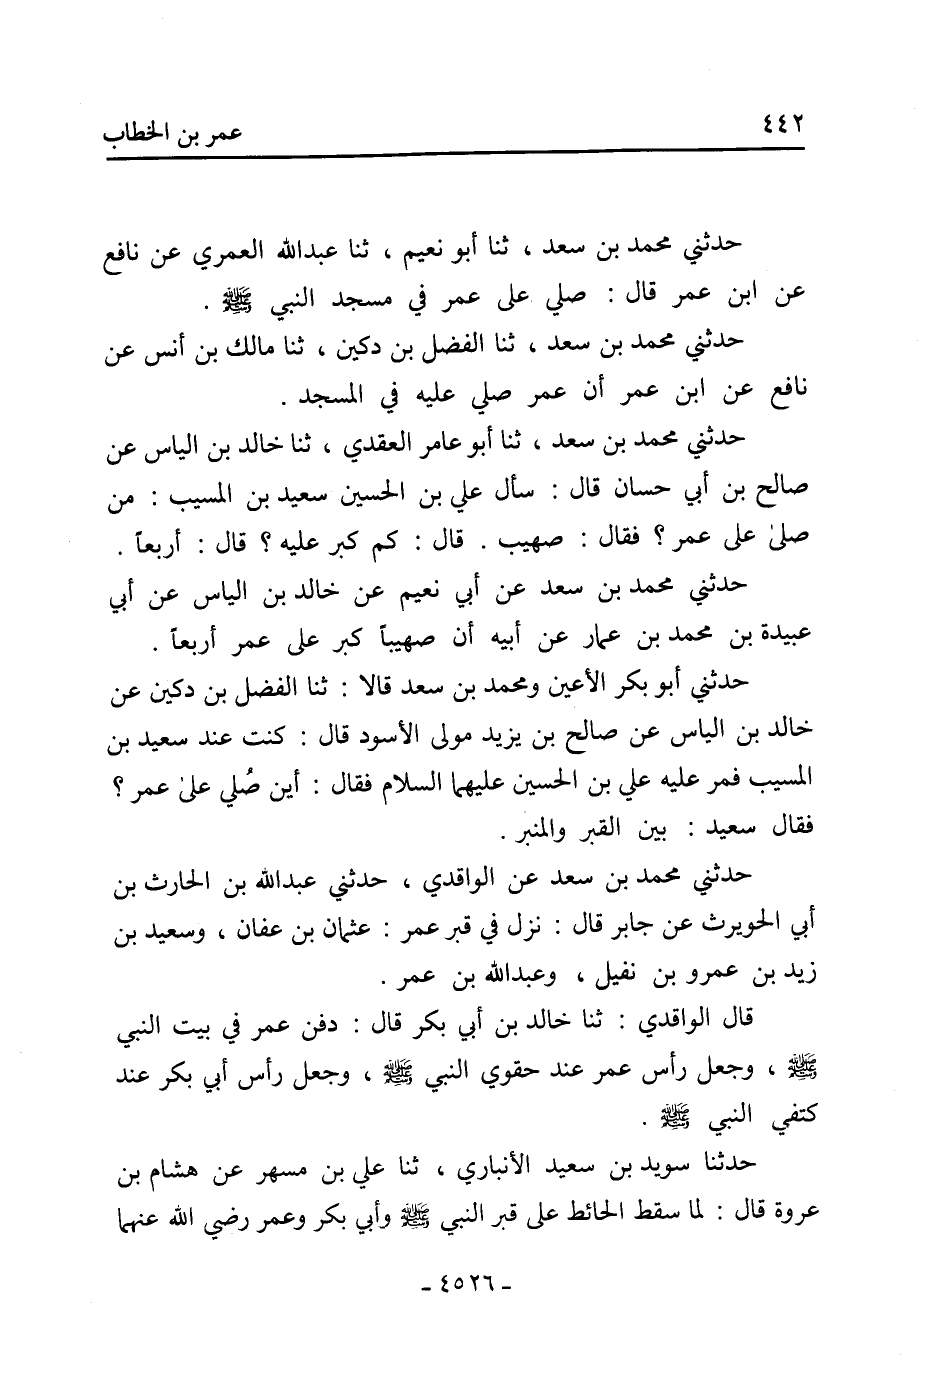 ٤٤٢ عمر بن الخطاب
حدثني محمد بن سعد ، ثنا أبو نعيم ، ثنا عبدالله العمري عن نافع
عن ابن عمر قال : صلي على عمر في مسجد النبي ﷺ .
حدثني محمد بن سعد ، ثنا الفضل بن دكين ، ثنا مالك بن أنس عن
نافع عن ابن عمر أن عمر صلي عليه في المسجد .
حدثني محمد بن سعد ، ثنا أبو عامر العقدي ، ثنا خالد بن الياس عن
صالح بن أبي حسان قال : سأل علي بن الحسين سعيد بن المسيب : من
صلىٰ على عمر ؟ فقال : صهيب . قال : كم كبر عليه ؟ قال : أربعاً .
حدثني محمد بن سعد عن أبي نعيم عن خالد بن الياس عن أبي
عبيدة بن محمد بن عمار عن أبيه أن صهيباً كبر على عمر أربعاً .
حدثني أبو بكر الأعين ومحمد بن سعد قالا : ثنا الفضل بن دكين عن
خالد بن الياس عن صالح بن يزيد مولى الأسود قال : كنت عند سعيد بن
المسيب فمر عليه علي بن الحسين عليهما السلام فقال : أين صُلي علىٰ عمر ؟
فقال سعيد : بين القبر والمنبر .
حدثني محمد بن سعد عن الواقدي ، حدثني عبدالله بن الحارث بن
أبي الحويرث عن جابر قال : نزل في قبر عمر : عثمان بن عفان ، وسعيد بن
زيد بن عمرو بن نفيل ، وعبدالله بن عمر .
قال الواقدي : ثنا خالد بن أبي بكر قال : دفن عمر في بيت النبي
ﷺ ، وجعل رأس عمر عند حقوي النبي ﷺ ، وجعل رأس أبي بكر عند
كتفي النبي ﷺ .
حدثنا سويد بن سعيد الأنباري ، ثنا علي بن مسهر عن هشام بن
عروة قال : لما سقط الحائط على قبر النبي ﷺ وأبي بكر وعمر رضي الله عنهما
- ٤٥٢٦ -